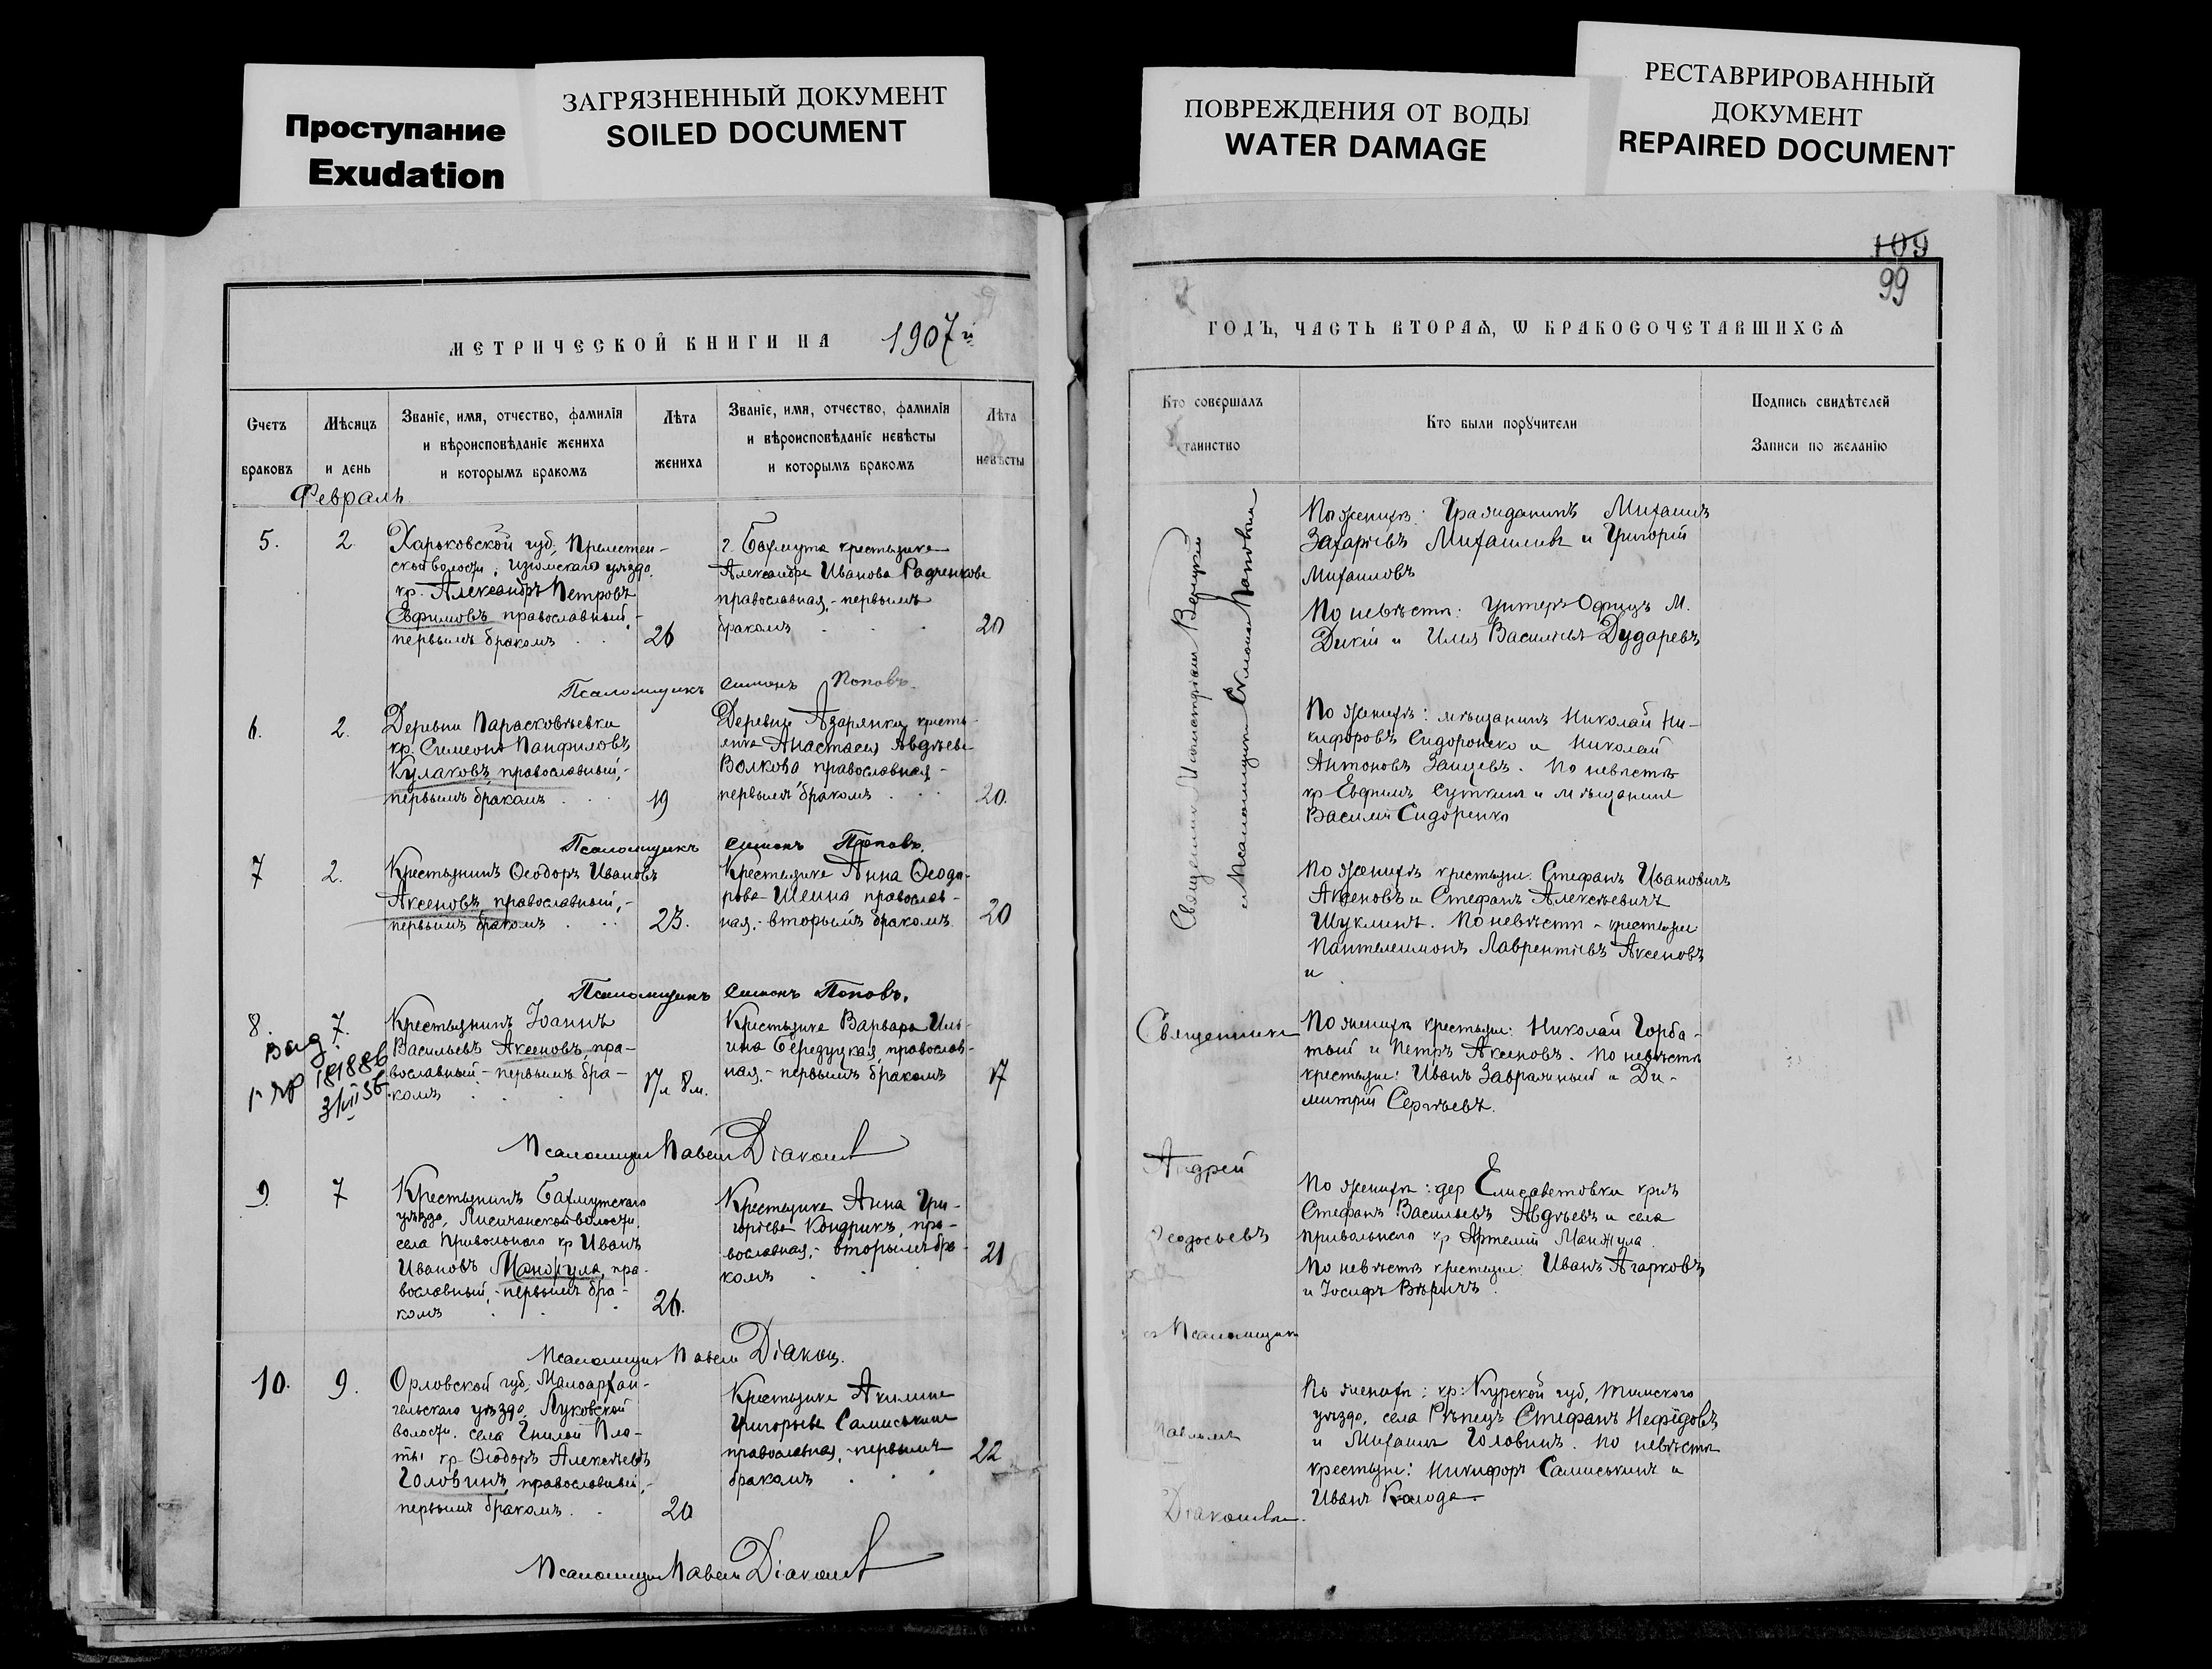 Проступание
Exudation
ЗАГРЯЗНЕННЫЙ ДОКУМЕНТ
SOILED DOCUMENT
ПОВРЕЖДЕНИЯ ОТ ВОДЫ
WATER DAMAGE
РЕСТАВРИРОВАННЫЙ
ДОКУМЕНТ
REPAIRED DOCUMENT
МЕТРИЧЕСКОЙ КНИГИ НА 1907 й
Счетъ
браковъ
Мѣсяцъ
и день
Званіе, имя, отчество, фамилія
и вѣроисповѣданіе жениха
и которымъ бракомъ
Лѣта
жениха
Званіе, имя, отчество, фамилія
и вѣроисповѣданіе невѣсты
и которымъ бракомъ
Лѣта
невѣсты
Февраль
5.
2.
Харьковской губ,
волости, Изюмскаго уѣзда,
кр. Александръ Петровъ
Евфимовъ, православный,-
первымъ бракомъ
26
г. Бахмута крестьянка
Александра Иванова Радченкова
православная,- первымъ
бракомъ
20
Псаломщикъ Симонъ Поповъ.
6.
2.
Деревни Парасковѣевки
кр. Симеонъ Панфиловъ
Кулаковъ, православный,-
первымъ бракомъ
19
Деревни Азарянки, кресть-
янка Анастасія Авдѣева
Волкова православная,-
первымъ бракомъ
20.
Псаломщикъ Симонъ Поповъ.
7
2.
Крестьянинъ Ѳеодоръ Ивановъ
Аксеновъ, православный,-
первымъ бракомъ
23.
Крестьянка Анна Ѳеодо-
рова Шеина православ-
ная,- вторымъ бракомъ.
20
Псаломщикъ Симонъ Поповъ.
8.
7.
Крестьянинъ Іоаннъ
Васильевъ Аксеновъ, пра-
вославный,- первымъ бра-
комъ
17 л 8 м.
Крестьянка Варвара Иль-
ина Бередуцкая, православ-
ная,- первымъ бракомъ
17
181886
3/VII 56.
Псаломщикъ Павелъ Діаконовъ
9.
7
Крестьянинъ Бахмутскаго
уѣзда, Лисичанской волости,
села Привольнаго кр Иванъ
Ивановъ Манжула, пра-
вославный,- первымъ бра-
комъ
26.
Крестьянка Анна Гри-
горьева Кондрикъ, пра-
вославная,- вторымъ бра-
комъ
21
Псаломщикъ Павелъ Діакон.
10.
9.
Орловской губ, Малоархан-
гельскаго уѣзда, Луковской
волости, села Гнилой Пло-
ты кр. Ѳеодоръ Алексѣевъ
Головинъ, православный,-
первымъ бракомъ
20
Крестьянка Акилина
Григорьева Самиськина
православная,- первымъ
бракомъ
22
Псаломщикъ Павелъ Діаконовъ
109
99
ГОДЪ, ЧАСТЬ ВТОРАЯ, Ѡ БРАКОСОЧЕТАВШИХСЯ
Кто совершалъ
таинство
Кто были поручители
Подпись свидѣтелей
Записи по желанію
По женихѣ: Гражданинъ Михаилъ
Захарьевъ Михайловъ и Григорій
Михайловъ
По невѣстѣ: Унтеръ-Офицъ М.
Дикій и Илія Васильевъ Дударевъ
По женихѣ: мѣщанинъ Николай Ни-
кифоровъ Сидоренко и Николай
Антоновъ Зайцевъ. По невѣстѣ
кр Евфимъ Суткинъ и мѣщанинъ
Василій Сидоренко
По женихѣ крестьяне: Стефанъ Ивановичъ
Аксеновъ и Стефанъ Алексѣевичъ
Шуклинъ. По невѣстѣ - крестьяне
Пантелеимонъ Лаврентьевъ Аксеновъ
и
Священникъ
и Псаломщикъ Симонъ Поповъ
Священникъ
По женихѣ крестьяне: Николай Горба-
тый и Петръ Аксеновъ. По невѣстѣ
крестьяне: Иванъ Завражный и Ди-
митрій Сергѣевъ.
Андрей
Ѳеодосьевъ
По женихѣ: дер Елисаветовки кр-нъ
Стефанъ Васильевъ Авдѣевъ и села
Привольнаго кр Артемій Манжула.
По невѣстѣ крестьяне: Иванъ Агарковъ
и Іосифъ Вѣричъ.
съ Псаломщик
По женихѣ: кр: Курской губ, Тимскаго
уѣзда, села Рѣпецъ Стефанъ Нефідовъ
и Михаилъ Головинъ. По невѣстѣ
крестьяне: Никифоръ Самиськинъ и
Иванъ Колода.
Павломъ
Діаконовым.